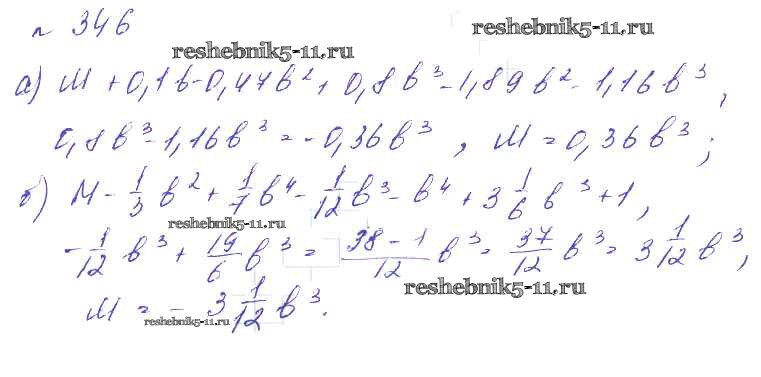 № 346
reshebnik5-11.ru
reshebnik5-11.ru
а) М + 0,1b - 0,47b² + 0,8b³ - 1,89b² - 1,16b³,
0,8b³ - 1,16b³ = -0,36b³, М = 0,36b³;
б) М - 1/3 b² + 1/7 b⁴ - 1/12 b³ - b⁴ + 3 1/6 b³ + 1,
reshebnik5-11.ru
- 1/12 b³ + 19/6 b³ = (38 - 1)/12 b³ = 37/12 b³ = 3 1/12 b³,
reshebnik5-11.ru
М = - 3 1/12 b³.
reshebnik5-11.ru